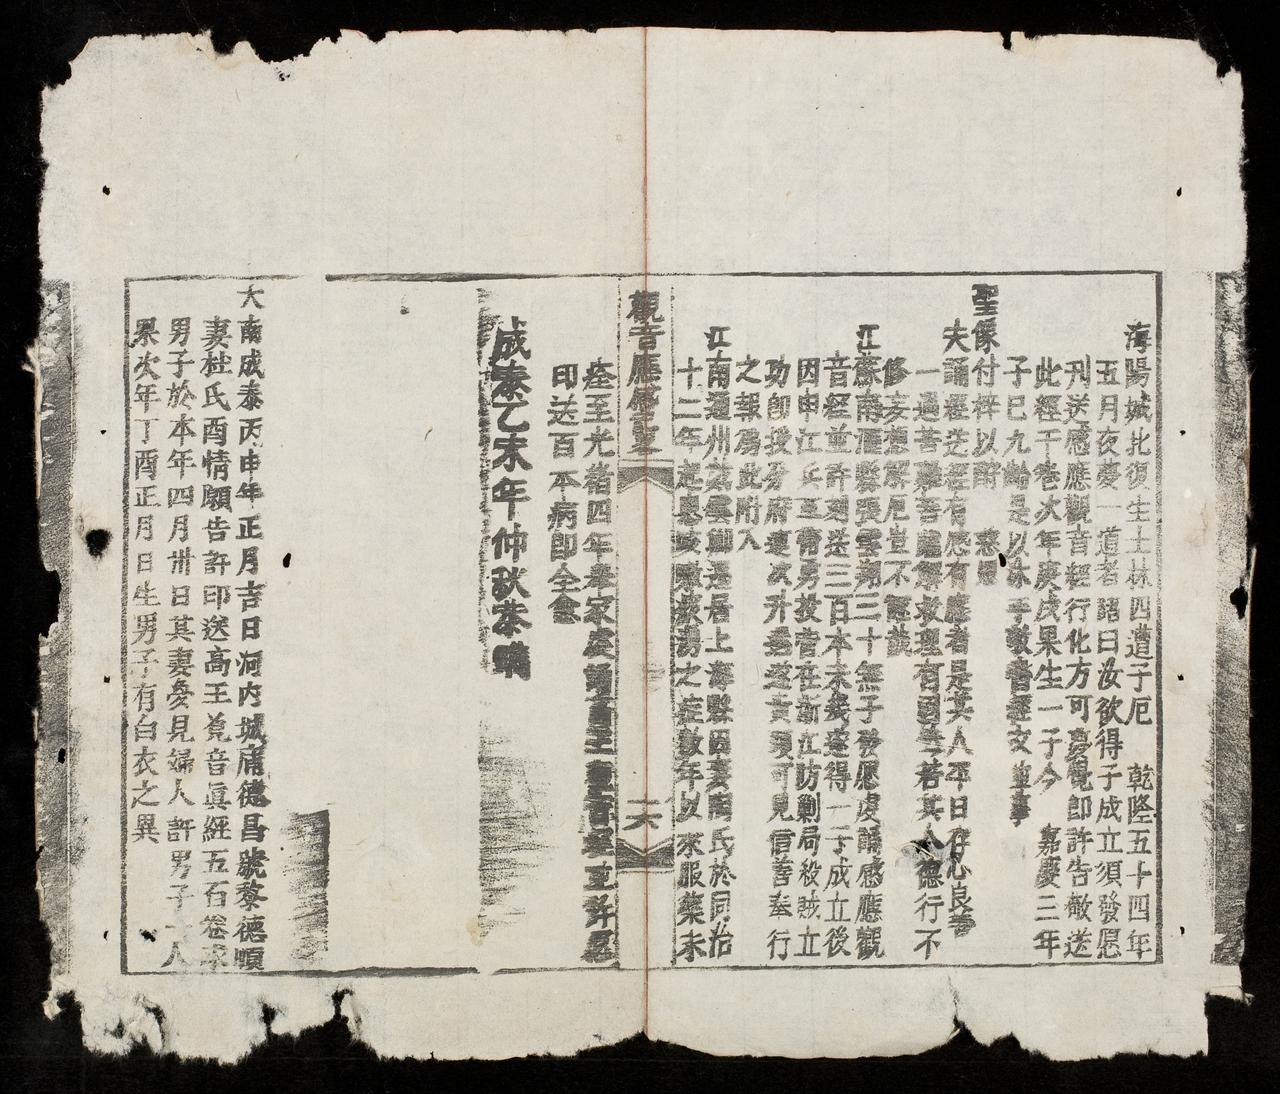 海陽城北復生士林四遭子厄 乾隆五十四年
五月夜夢一道者語曰汝欲得子成立須發愿
刋送感應觀音經行化方可夢覺即許告敬送
此經千卷次年庚戌果生一子今 嘉慶三年
子巳九齡是以沐手敬書經文並事
聖像付梓以酧 慈
夫誦經送經有感有應者是其人平日存心良善
一遇苦難菩薩解救理有固然若其人德行不
修妄想解厄豈不謬哉
江蘇南滙縣張雲翔三十無子發愿虔誦感應觀
音經並許刻送三百本未幾連得一子成立後
因申江兵亂帶勇投在浙江防剿局殺賊立
功即授分府連次升遷道貢現可見信善奉行
之報爲此附入
江南通州姜雲卿遇居上海縣因妻周氏於同治
十二年起患咳嗽痰湧之症數年以來服藥未
觀音應感聖 六
痊至光緒四年奉家虔誦高王觀音經並許愿
印送百本病即全愈
成泰乙未年仲秋恭鐫
大南成泰丙申年正月吉日河内城庯德昌號黎德順
妻杜氏酉情願告許印送高王觀音眞經五百卷求
男子於本年四月卅日其妻夢見婦人許男子一人
果次年丁酉正月日生男子有白衣之異